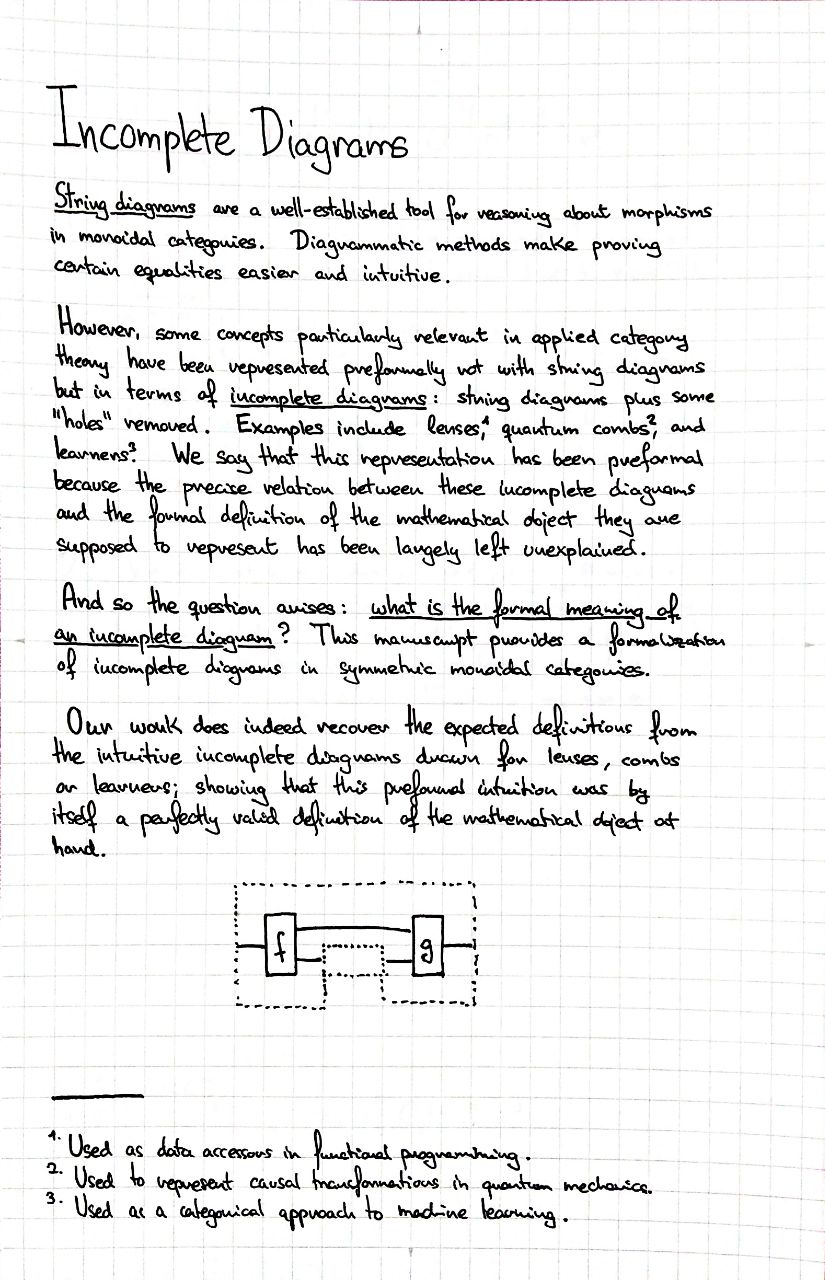 Incomplete Diagrams
String diagrams are a well-established tool for reasoning about morphisms
in monoidal categories. Diagrammatic methods make proving
certain equalities easier and intuitive.
However, some concepts particularly relevant in applied category
theory have been represented preformally not with string diagrams
but in terms of incomplete diagrams: string diagrams plus some
"holes" removed. Examples include lenses,¹ quantum combs², and
learners³. We say that this representation has been preformal
because the precise relation between these incomplete diagrams
and the formal definition of the mathematical object they are
supposed to represent has been largely left unexplained.
And so the question arises: what is the formal meaning of
an incomplete diagram? This manuscript provides a formalization
of incomplete diagrams in symmetric monoidal categories.
Our work does indeed recover the expected definitions from
the intuitive incomplete diagrams drawn for lenses, combs
or learners; showing that this preformal intuition was by
itself a perfectly valid definition of the mathematical object at
hand.
f g
1. Used as data accessors in functional programming.
2. Used to represent causal transformations in quantum mechanics.
3. Used as a categorical approach to machine learning.